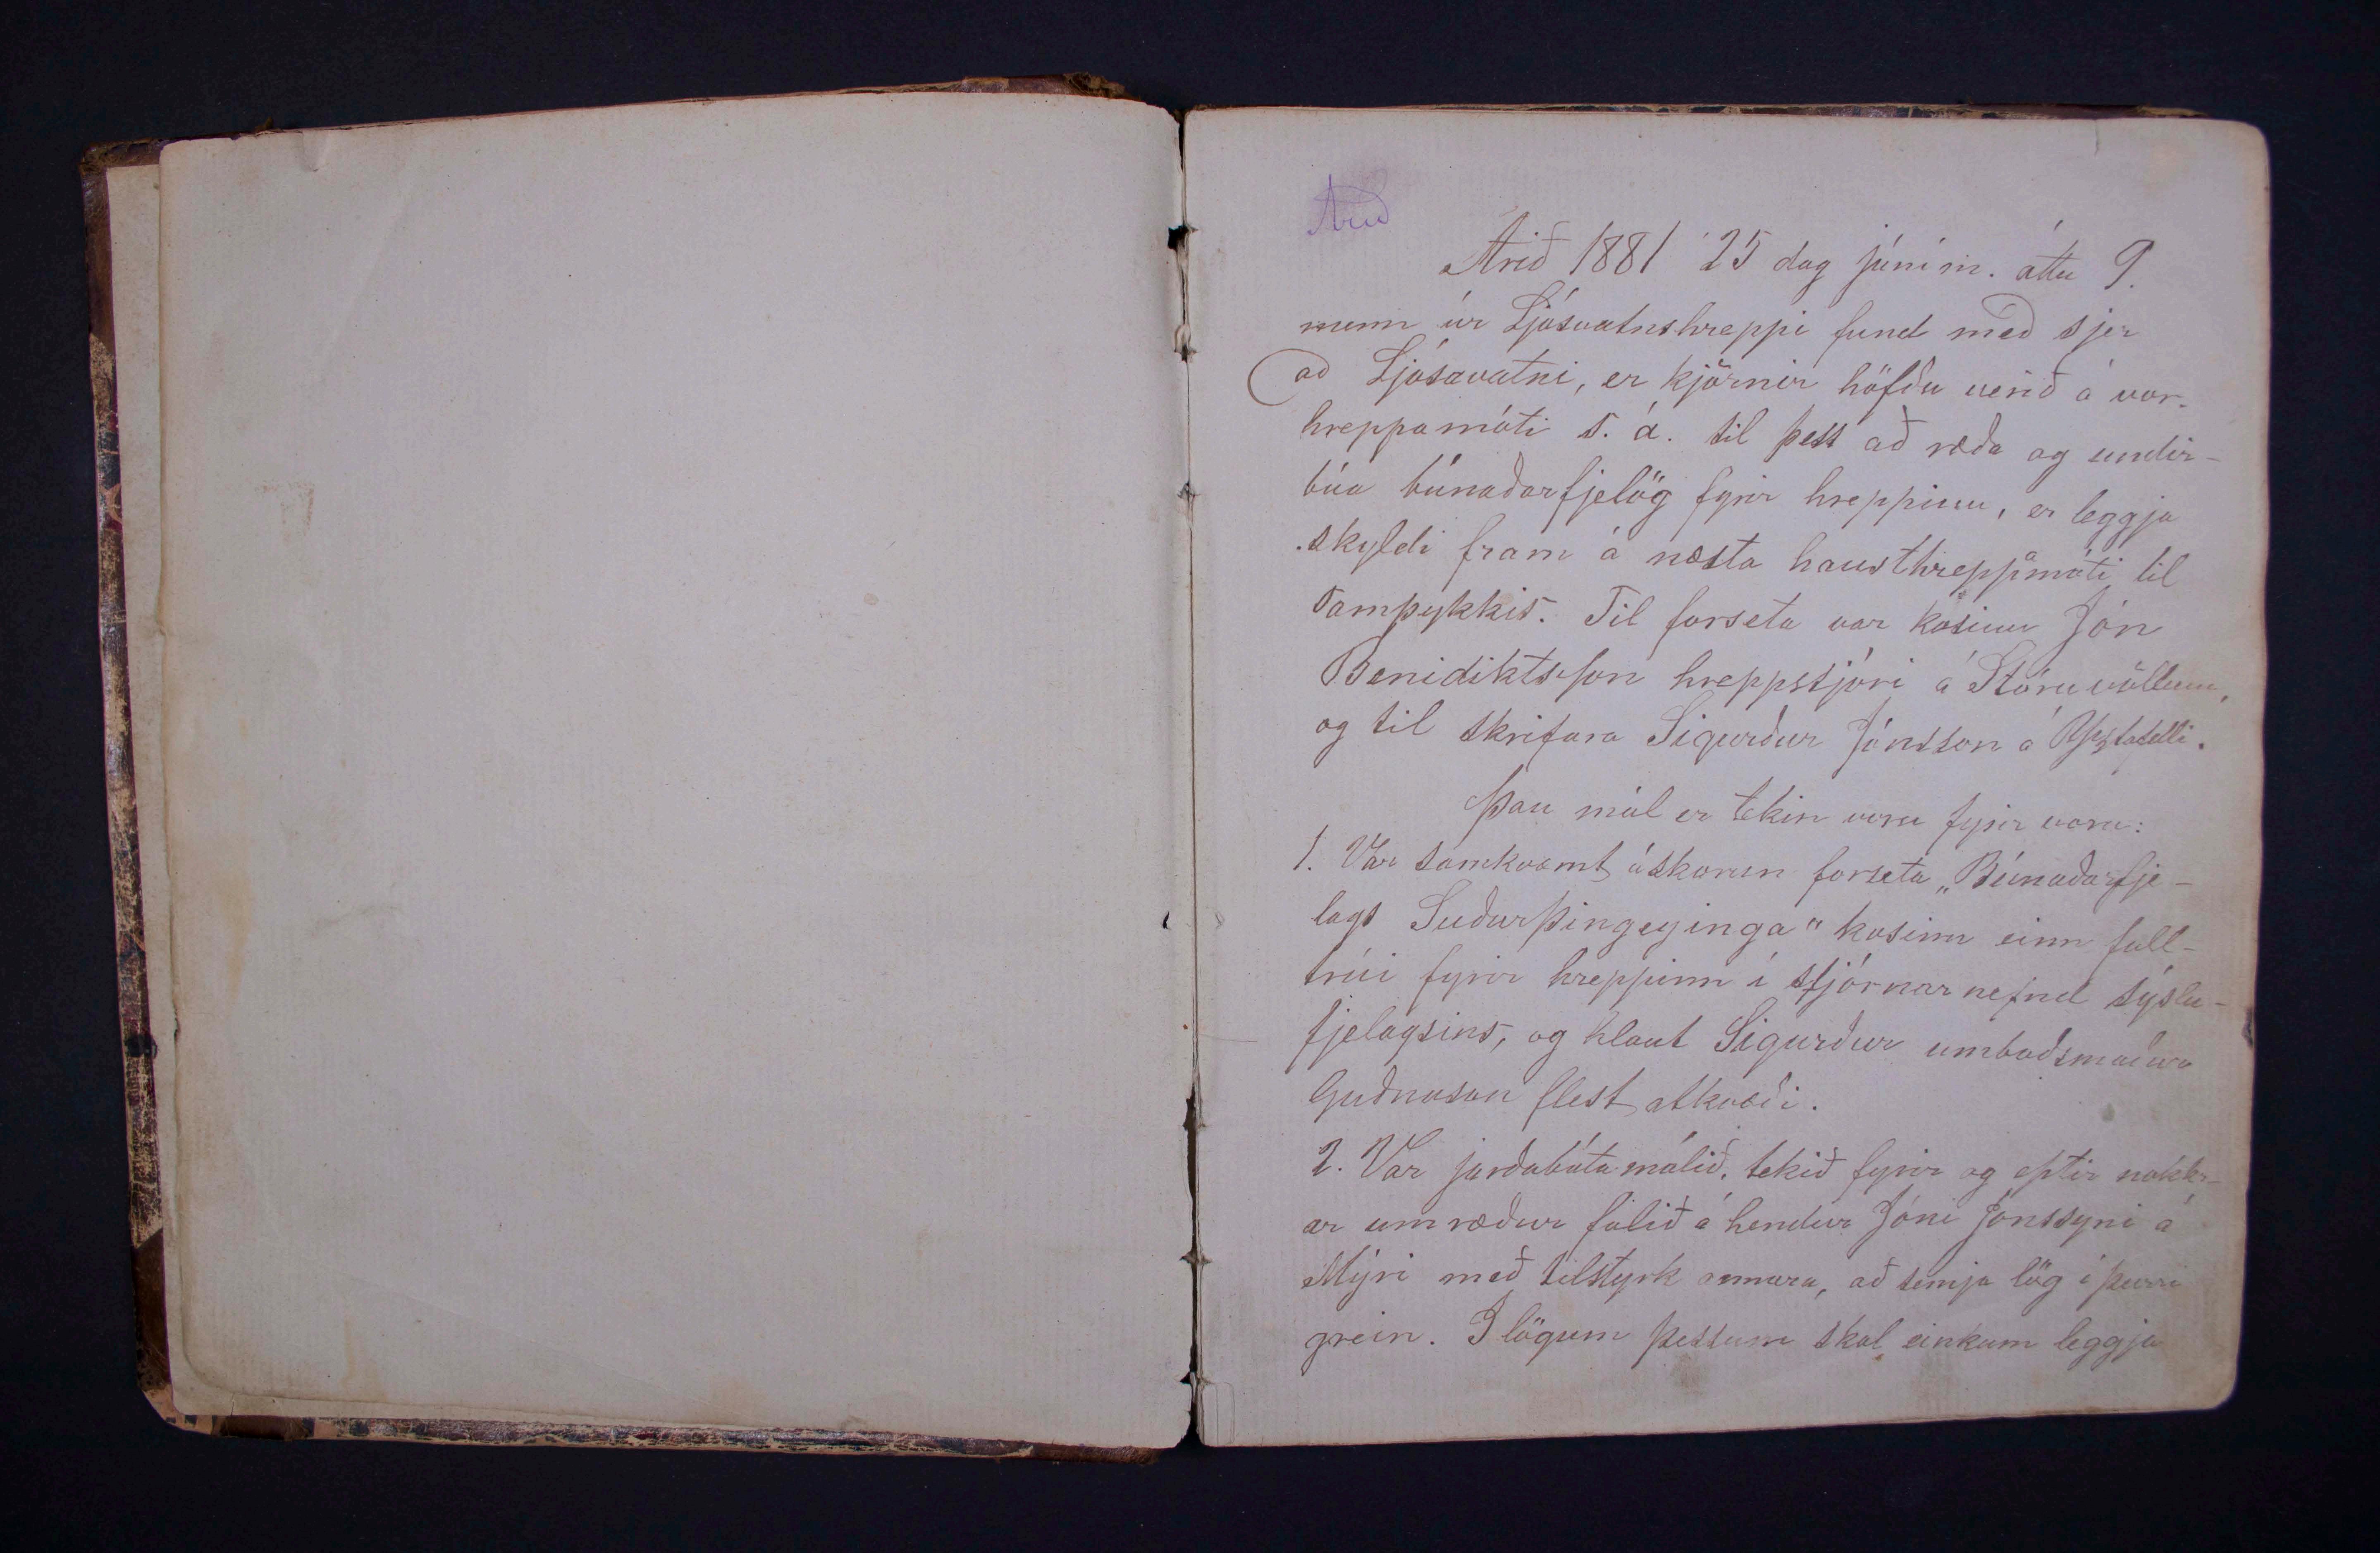 Árið
Árið 1881 25 dag júním. áttu 9.
menn úr Ljósvatnshreppi fund með sjer
að Ljósavatni, er kjörnir höfðu verið á vor-
hreppamóti s. á. til þess að ræða og undir-
búa búnaðarfjelög fyrir hreppinn, er leggja
skyldi fram á næsta hausthreppamóti til
samþykkis. Til forseta var kosinn Jón
Benidiktsson hreppstjóri á Stóruvöllum,
og til skrifara Sigurður Jónsson á Yztafelli.
Þau mál er tekin voru fyrir voru:
1. Var samkvæmt áskorun forseta „Búnaðarfje-
lags Suðurþingeyinga" kosinn einn full-
trúi fyrir hreppinn í stjórnarnefnd sýslu-
fjelagsins, og hlaut Sigurður umboðsmaður
Guðnason flest atkvæði.
2. Var jarðabótamálið, tekið fyrir og eptir nokkr-
ar umræður falið á hendur Jóni Jónssyni á
Mýri með tilstyrk annara, að semja lög í þeirri
grein. I lögum þessum skal einkum leggja